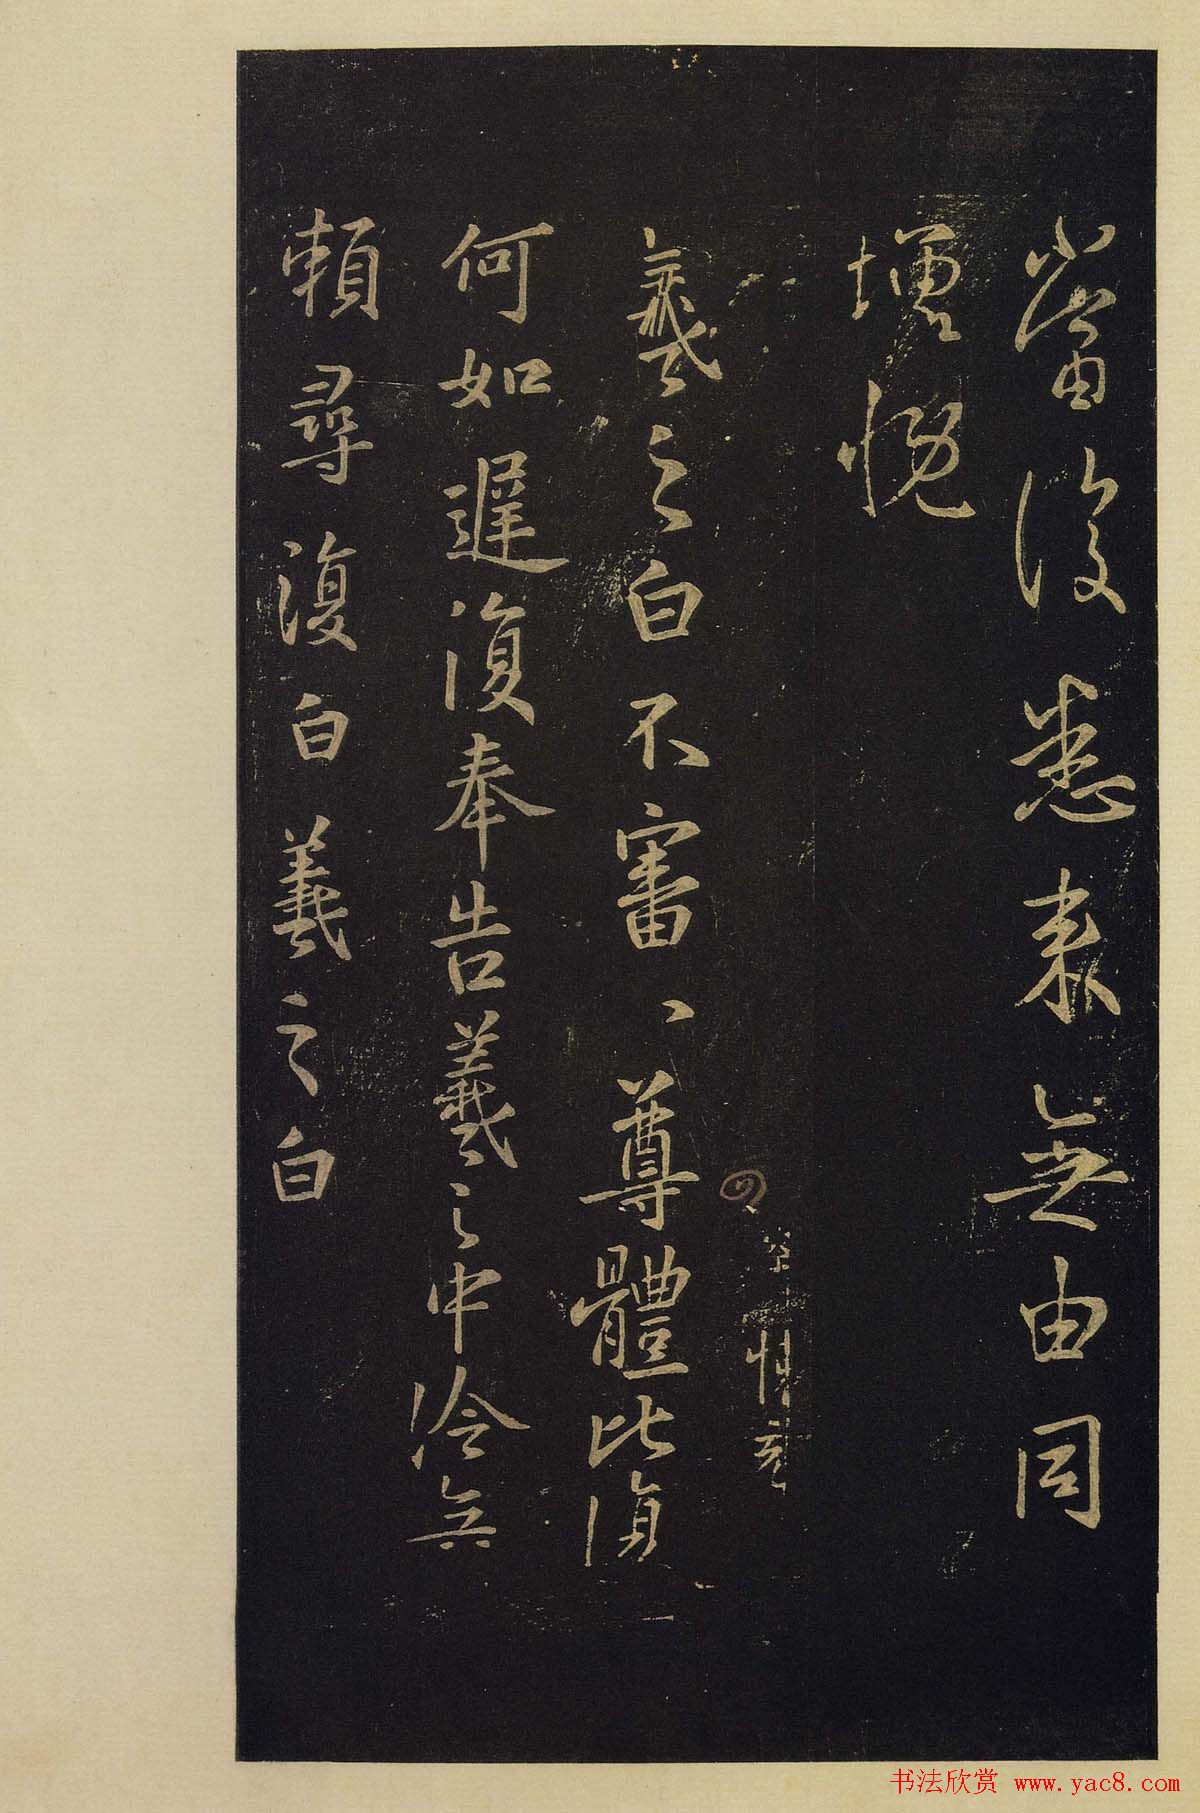 當復悉来無由同
增慨
羲之白不審、尊體比復
何如遲復奉告羲之中冷無
賴尋復白羲之白
书法欣赏 www.yac8.com